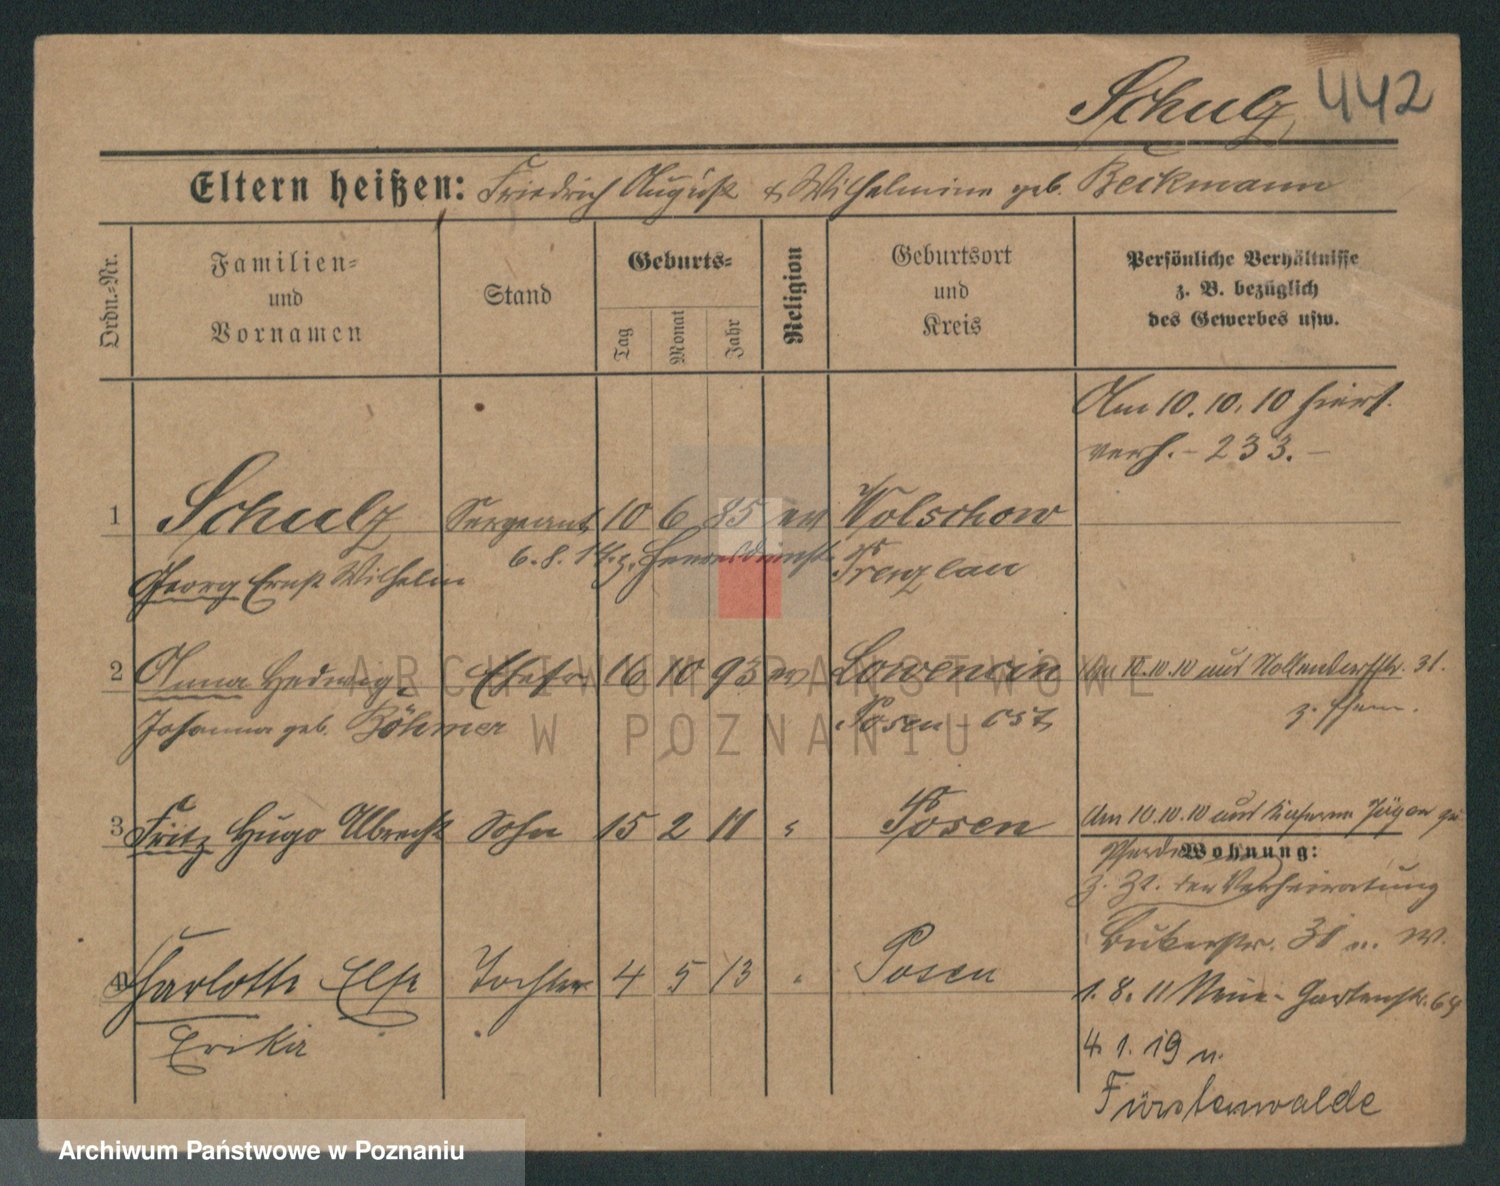 Schulz 442
Eltern heißen: Friedrich August & Wilhelmine geb. Beckmann
Ordn.-Nr.
Familien-
und
Vornamen
Stand
Geburts-
Tag
Monat
Jahr
Religion
Geburtsort
und
Kreis
Persönliche Verhältnisse
z. B. bezüglich
des Gewerbes usw.
Am 10. 10. 10 hier
verh. - 233. -
1 Schulz Sergeant 10 6 85 ev Wolschow
6. 8. 14 z. Heeresdienst
Georg Ernst Wilhelm Prenzlau
2 Anna Hedwig Ehefr 16 10 93 ev Lowencin Am 10.10.10 aus 31.
Johanna geb. Böhmer Posen-Ost z. Ehem.
3 Fritz Hugo Albrecht Sohn 15 2 11 " Posen Am 10.10.10 aus Kaserne Jäger zu
Pferde
Wohnung:
z. Zt. der Verheiratung
Bukerstr. 31 W.
4 Charlotte Else Tochter 4 5 13 " Posen
1. 8. 11 Neue-Gartenstr.
Erika
4. 1. 19 n.
Fürstenwalde
ARCHIWUM PAŃSTWOWE
W POZNANIU
Archiwum Państwowe w Poznaniu